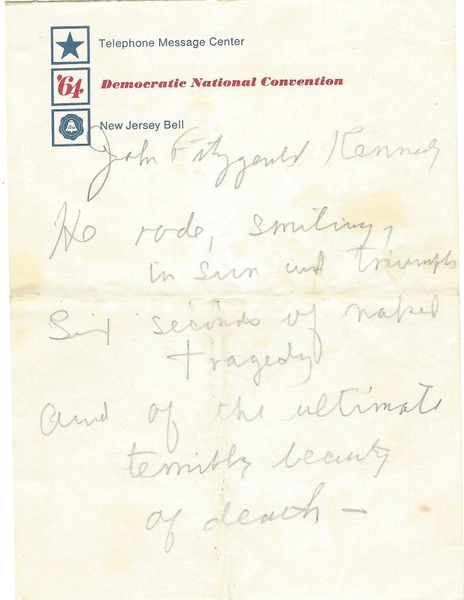 Telephone Message Center
'64 Democratic National Convention
New Jersey Bell
John Fitzgerald Kennedy
He rode, smiling,
in sun and triumph
Six seconds of naked
tragedy
and of the ultimate
terribly beauty
of death –